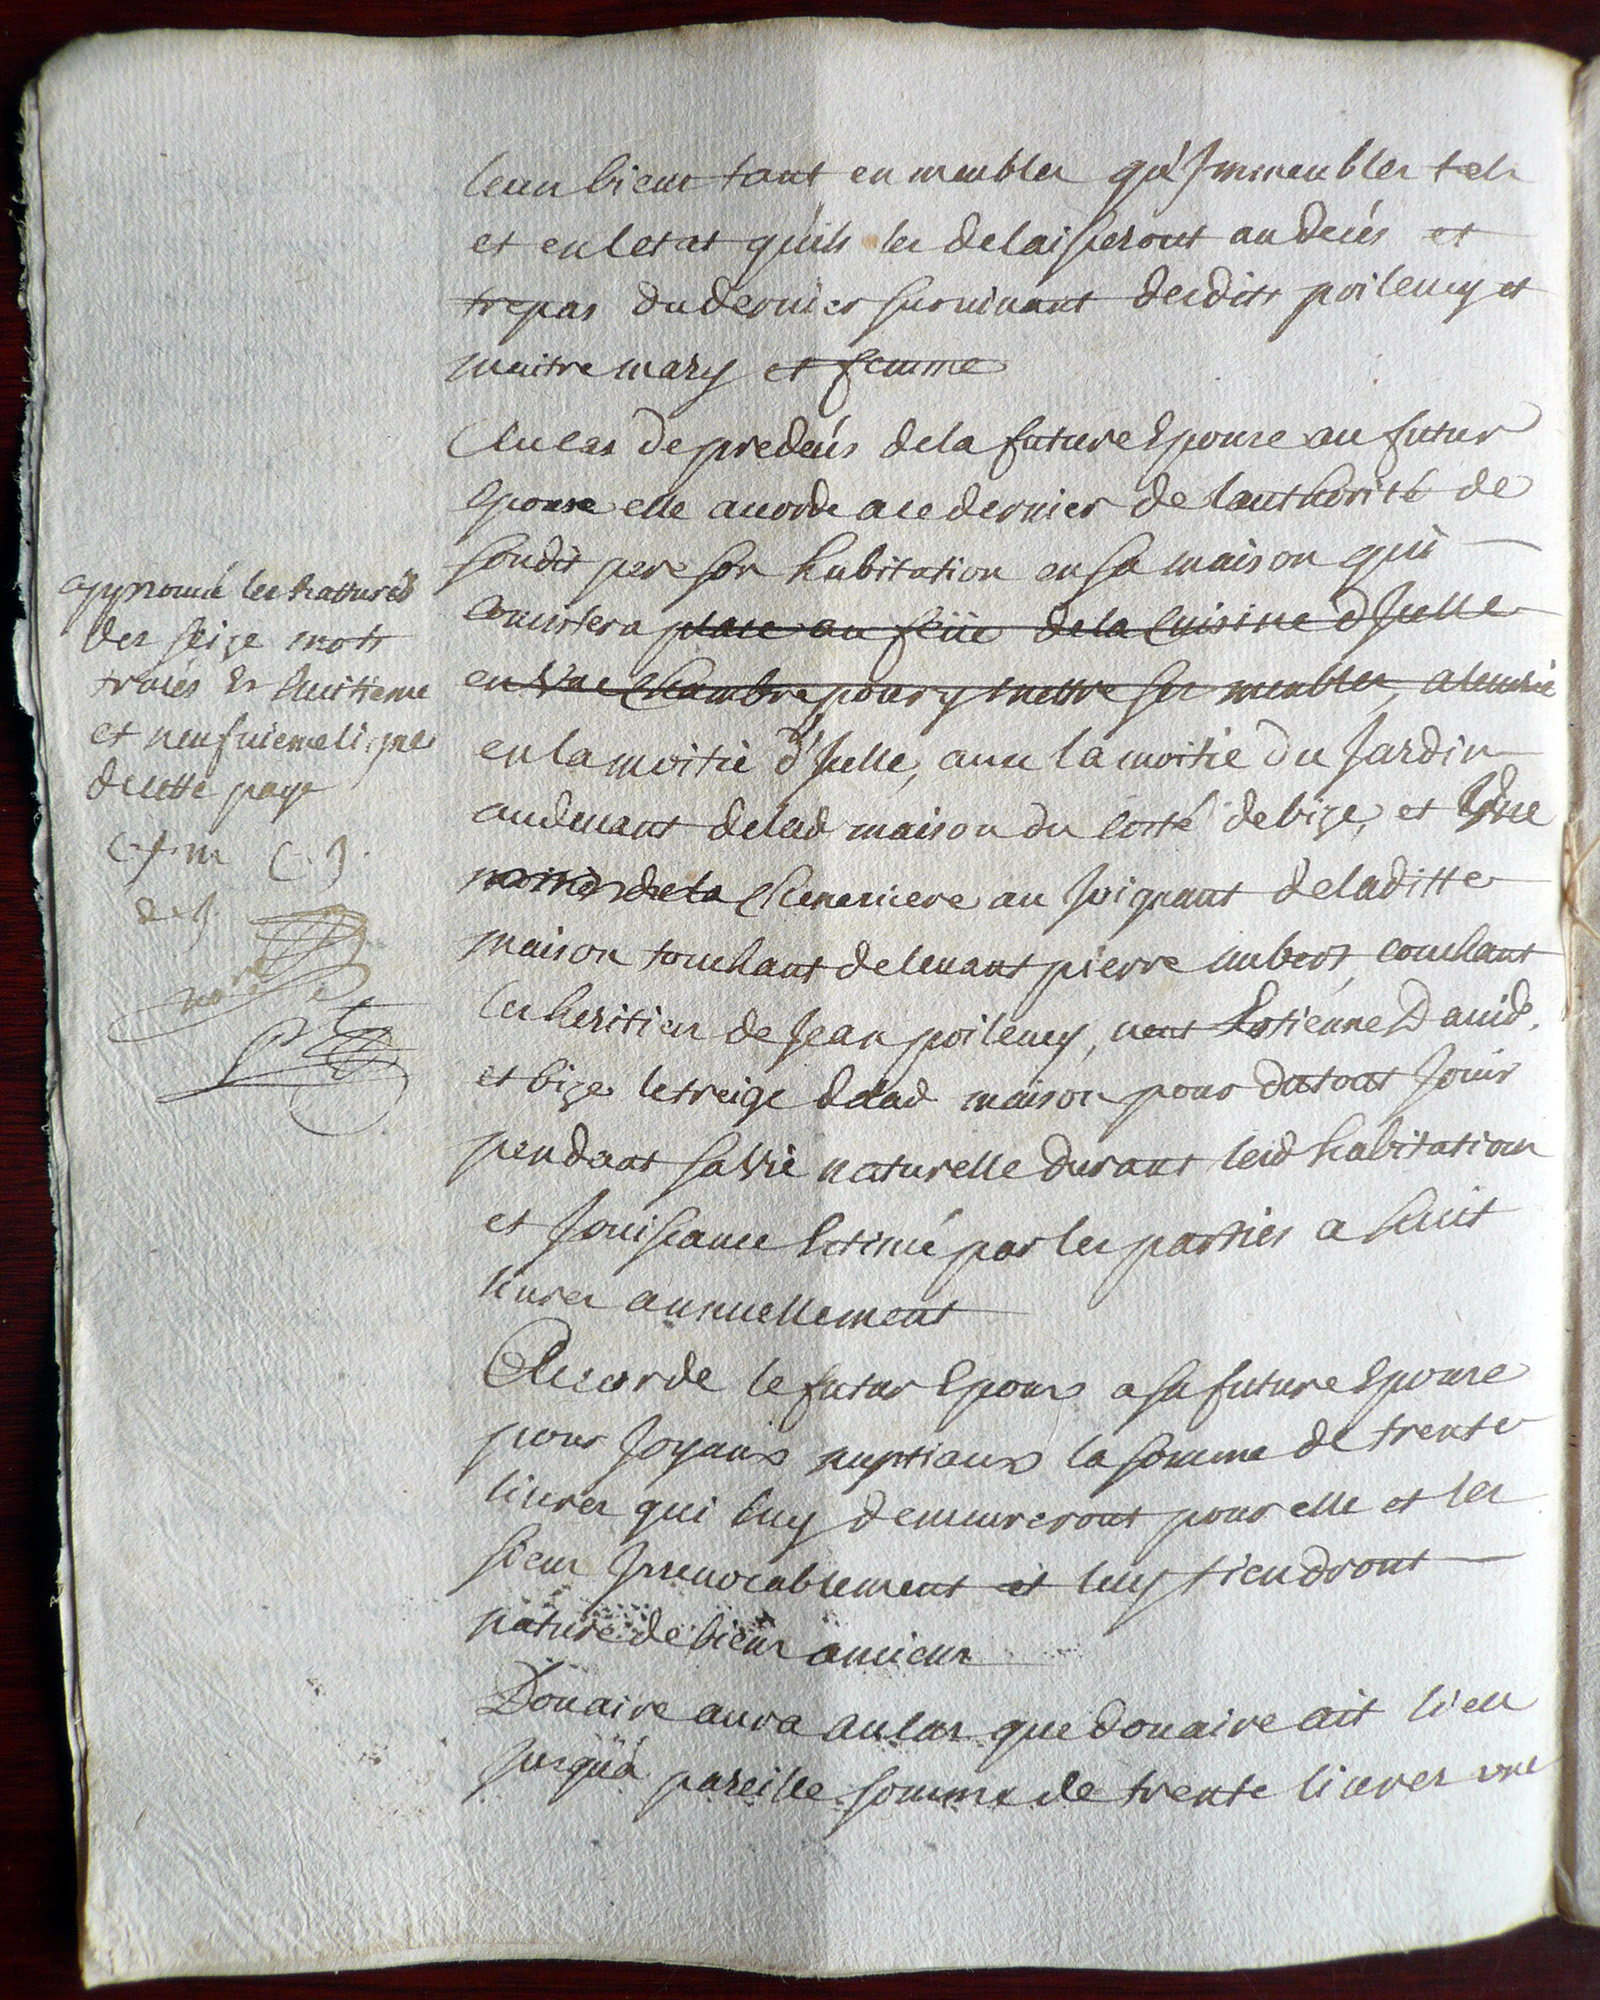 leurs biens tant en meubles qu'Jmmeubles tels
et en letat quils les delaisseront au decés et
trepas du dernier survivant desdits poilevey et
maitre mary et femme
Au cas de predecés de la future Epouse au futur
Epoux elle accorde a ce dernier de lauthorité de
sondit pere son habitation en sa maison qui
consistera place au feüe de la Cuisine d'Jcelle
en Vne Chambre pour y mettre ses meubles,
en la moitié d'Jcelle, avec la moitié du Jardin
au devant de lad maison du costé de bize, et Vne
moitié de la Cheneviere au Joignant de laditte
maison touchant de levant pierre imbert, couchant
les heritiers de Jean poilevey, vent Estienne David,
et bize le treige de lad maison pour du tout Jouir
pendant sa vie naturelle durant lesd habitation
et Jouissance Estimé par les parties a huit
livres annuellement
Accorde le futur Epoux a sa future Epouse
pour Joyaux nuptiaux la somme de trente
livres qui luy demeureront pour elle et les
siens Jrrevocablement et luy tiendront
nature de biens anciens
Douaire aura au cas que douaire ait lieu
jusqu'à pareille somme de trente livres une
approuvé les rattures
des seize mots
traiés Es huitieme
et neufvieme ligne
de cette page